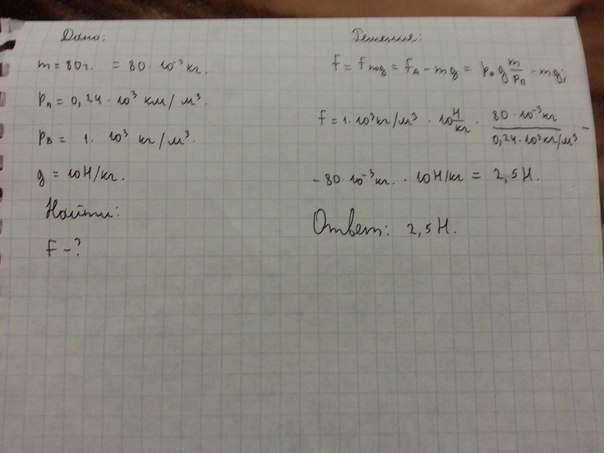 Дано:
m = 80г. = 80 · 10⁻³ кг.
ρп = 0,24 · 10³ км/м³.
ρв = 1 · 10³ кг/м³.
g = 10Н/кг.
Найти:
F - ?
Решение:
f = f под = FА - mg = ρв g m/ρп - mg;
f = 1 · 10³ кг/м³ · 10 Н/кг · 80 · 10⁻³ кг / 0,24 · 10³ кг/м³ -
- 80 · 10⁻³ кг. · 10Н/кг = 2,5Н.
Ответ: 2,5Н.